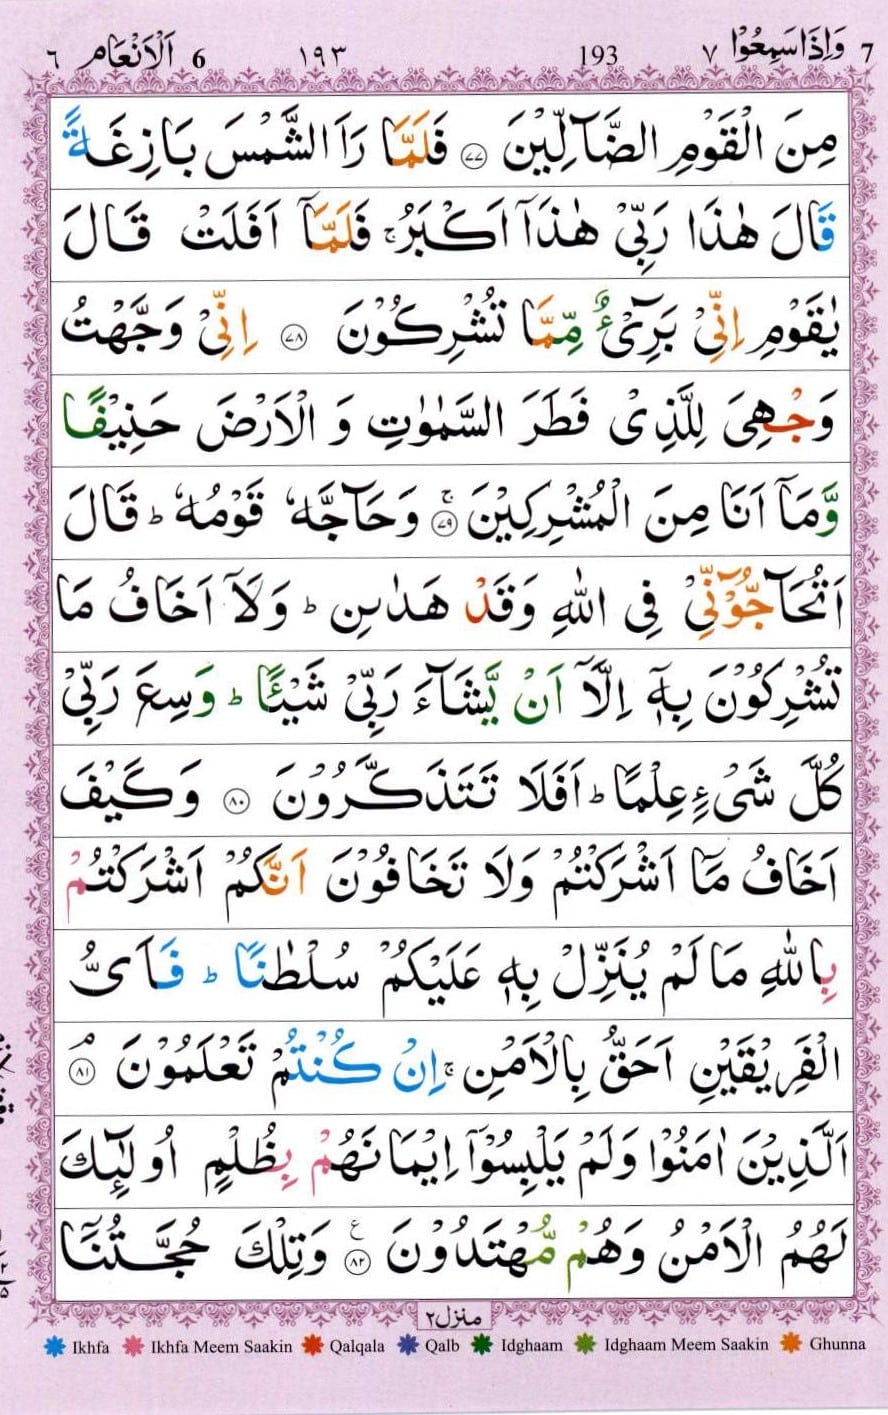 7 وَاِذَا سَمِعُوْا ٧ 193 ١٩٣ 6 اَلْاَنْعَام ٦
مِنَ الْقَوْمِ الضَّآلِّيْنَ ﴿٧٧﴾ فَلَمَّا رَاَ الشَّمْسَ بَازِغَةً
قَالَ هٰذَا رَبِّيْ هٰذَآ اَكْبَرُ ۚ فَلَمَّآ اَفَلَتْ قَالَ
يٰقَوْمِ اِنِّيْ بَرِيْٓءٌ مِّمَّا تُشْرِكُوْنَ ﴿٧٨﴾ اِنِّيْ وَجَّهْتُ
وَجْهِيَ لِلَّذِيْ فَطَرَ السَّمٰوٰتِ وَ الْاَرْضَ حَنِيْفًا
وَّمَآ اَنَا مِنَ الْمُشْرِكِيْنَ ۚ ﴿٧٩﴾ وَحَآجَّهٗ قَوْمُهٗ ؕ قَالَ
اَتُحَآجُّوْٓنِّيْ فِي اللّٰهِ وَقَدْ هَدٰىنِ ؕ وَلَآ اَخَافُ مَا
تُشْرِكُوْنَ بِهٖٓ اِلَّآ اَنْ يَّشَآءَ رَبِّيْ شَيْـًٔا ؕ وَسِعَ رَبِّيْ
كُلَّ شَيْءٍ عِلْمًا ؕ اَفَلَا تَتَذَكَّرُوْنَ ﴿٨٠﴾ وَكَيْفَ
اَخَافُ مَآ اَشْرَكْتُمْ وَلَا تَخَافُوْنَ اَنَّكُمْ اَشْرَكْتُمْ
بِاللّٰهِ مَا لَمْ يُنَزِّلْ بِهٖ عَلَيْكُمْ سُلْطٰنًا ؕ فَاَيُّ
الْفَرِيْقَيْنِ اَحَقُّ بِالْاَمْنِ ۚ اِنْ كُنْتُمْ تَعْلَمُوْنَ ۘ ﴿٨١﴾
اَلَّذِيْنَ اٰمَنُوْا وَلَمْ يَلْبِسُوْٓا اِيْمَانَهُمْ بِظُلْمٍ اُولٰٓئِكَ
لَهُمُ الْاَمْنُ وَهُمْ مُّهْتَدُوْنَ ﴿٨٢﴾ ع وَتِلْكَ حُجَّتُنَآ
منزل٢
Ikhfa Ikhfa Meem Saakin Qalqala Qalb Idghaam Idghaam Meem Saakin Ghunna